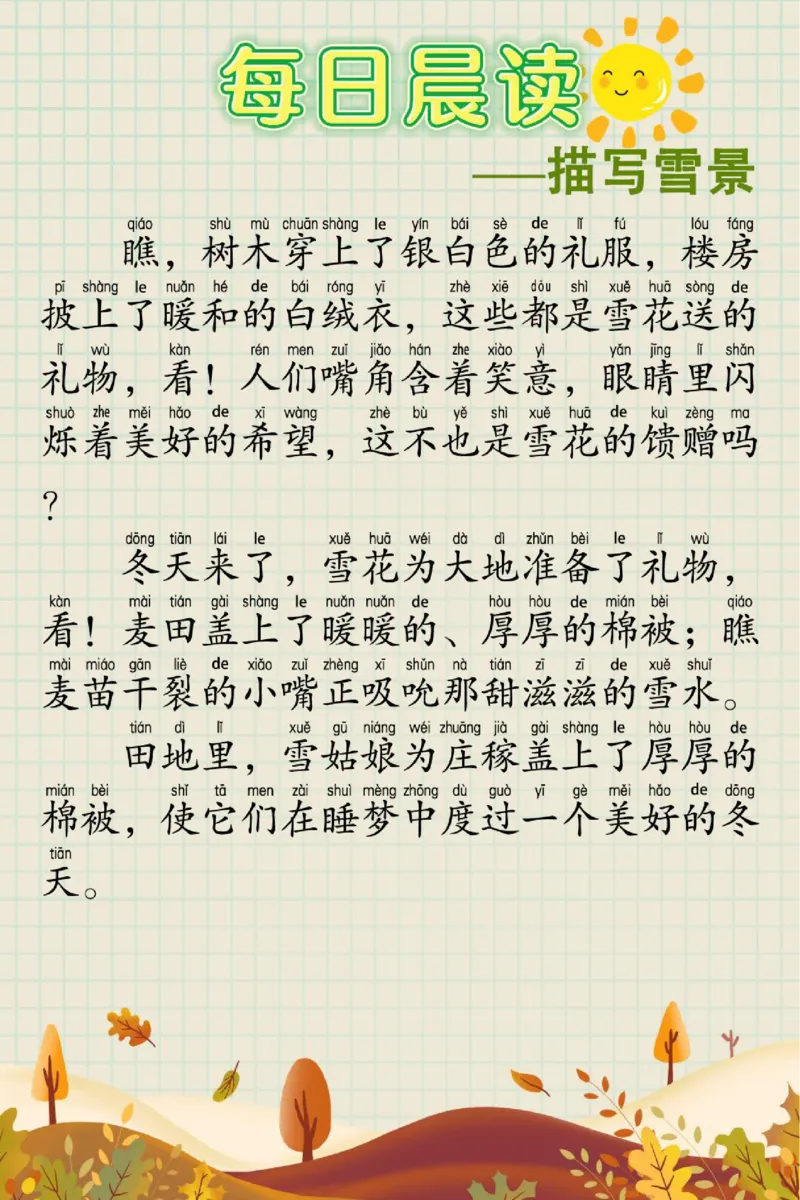 每日晨读
——描写雪景
qiáo shù mù chuān shàng le yín bái sè de lǐ fú lóu fáng
瞧，树木穿上了银白色的礼服，楼房
pī shàng le nuǎn hé de bái róng yī zhè xiē dōu shì xuě huā sòng de
披上了暖和的白绒衣，这些都是雪花送的
lǐ wù kàn rén men zuǐ jiǎo hán zhe xiào yì yǎn jīng lǐ shǎn
礼物，看！人们嘴角含着笑意，眼睛里闪
shuò zhe měi hǎo de xī wàng zhè bù yě shì xuě huā de kuì zèng ma
烁着美好的希望，这不也是雪花的馈赠吗
？
dōng tiān lái le xuě huā wéi dà dì zhǔn bèi le lǐ wù
冬天来了，雪花为大地准备了礼物，
kàn mài tián gài shàng le nuǎn nuǎn de hòu hòu de mián bèi qiáo
看！麦田盖上了暖暖的、厚厚的棉被；瞧
mài miáo gān liè de xiǎo zuǐ zhèng xī shǔn nà tián zī zī de xuě shuǐ
麦苗干裂的小嘴正吸吮那甜滋滋的雪水。
tián dì lǐ xuě gū niáng wéi zhuāng jià gài shàng le hòu hòu de
田地里，雪姑娘为庄稼盖上了厚厚的
mián bèi shǐ tā men zài shuì mèng zhōng dù guò yī gè měi hǎo de dōng
棉被，使它们在睡梦中度过一个美好的冬
tiān
天。